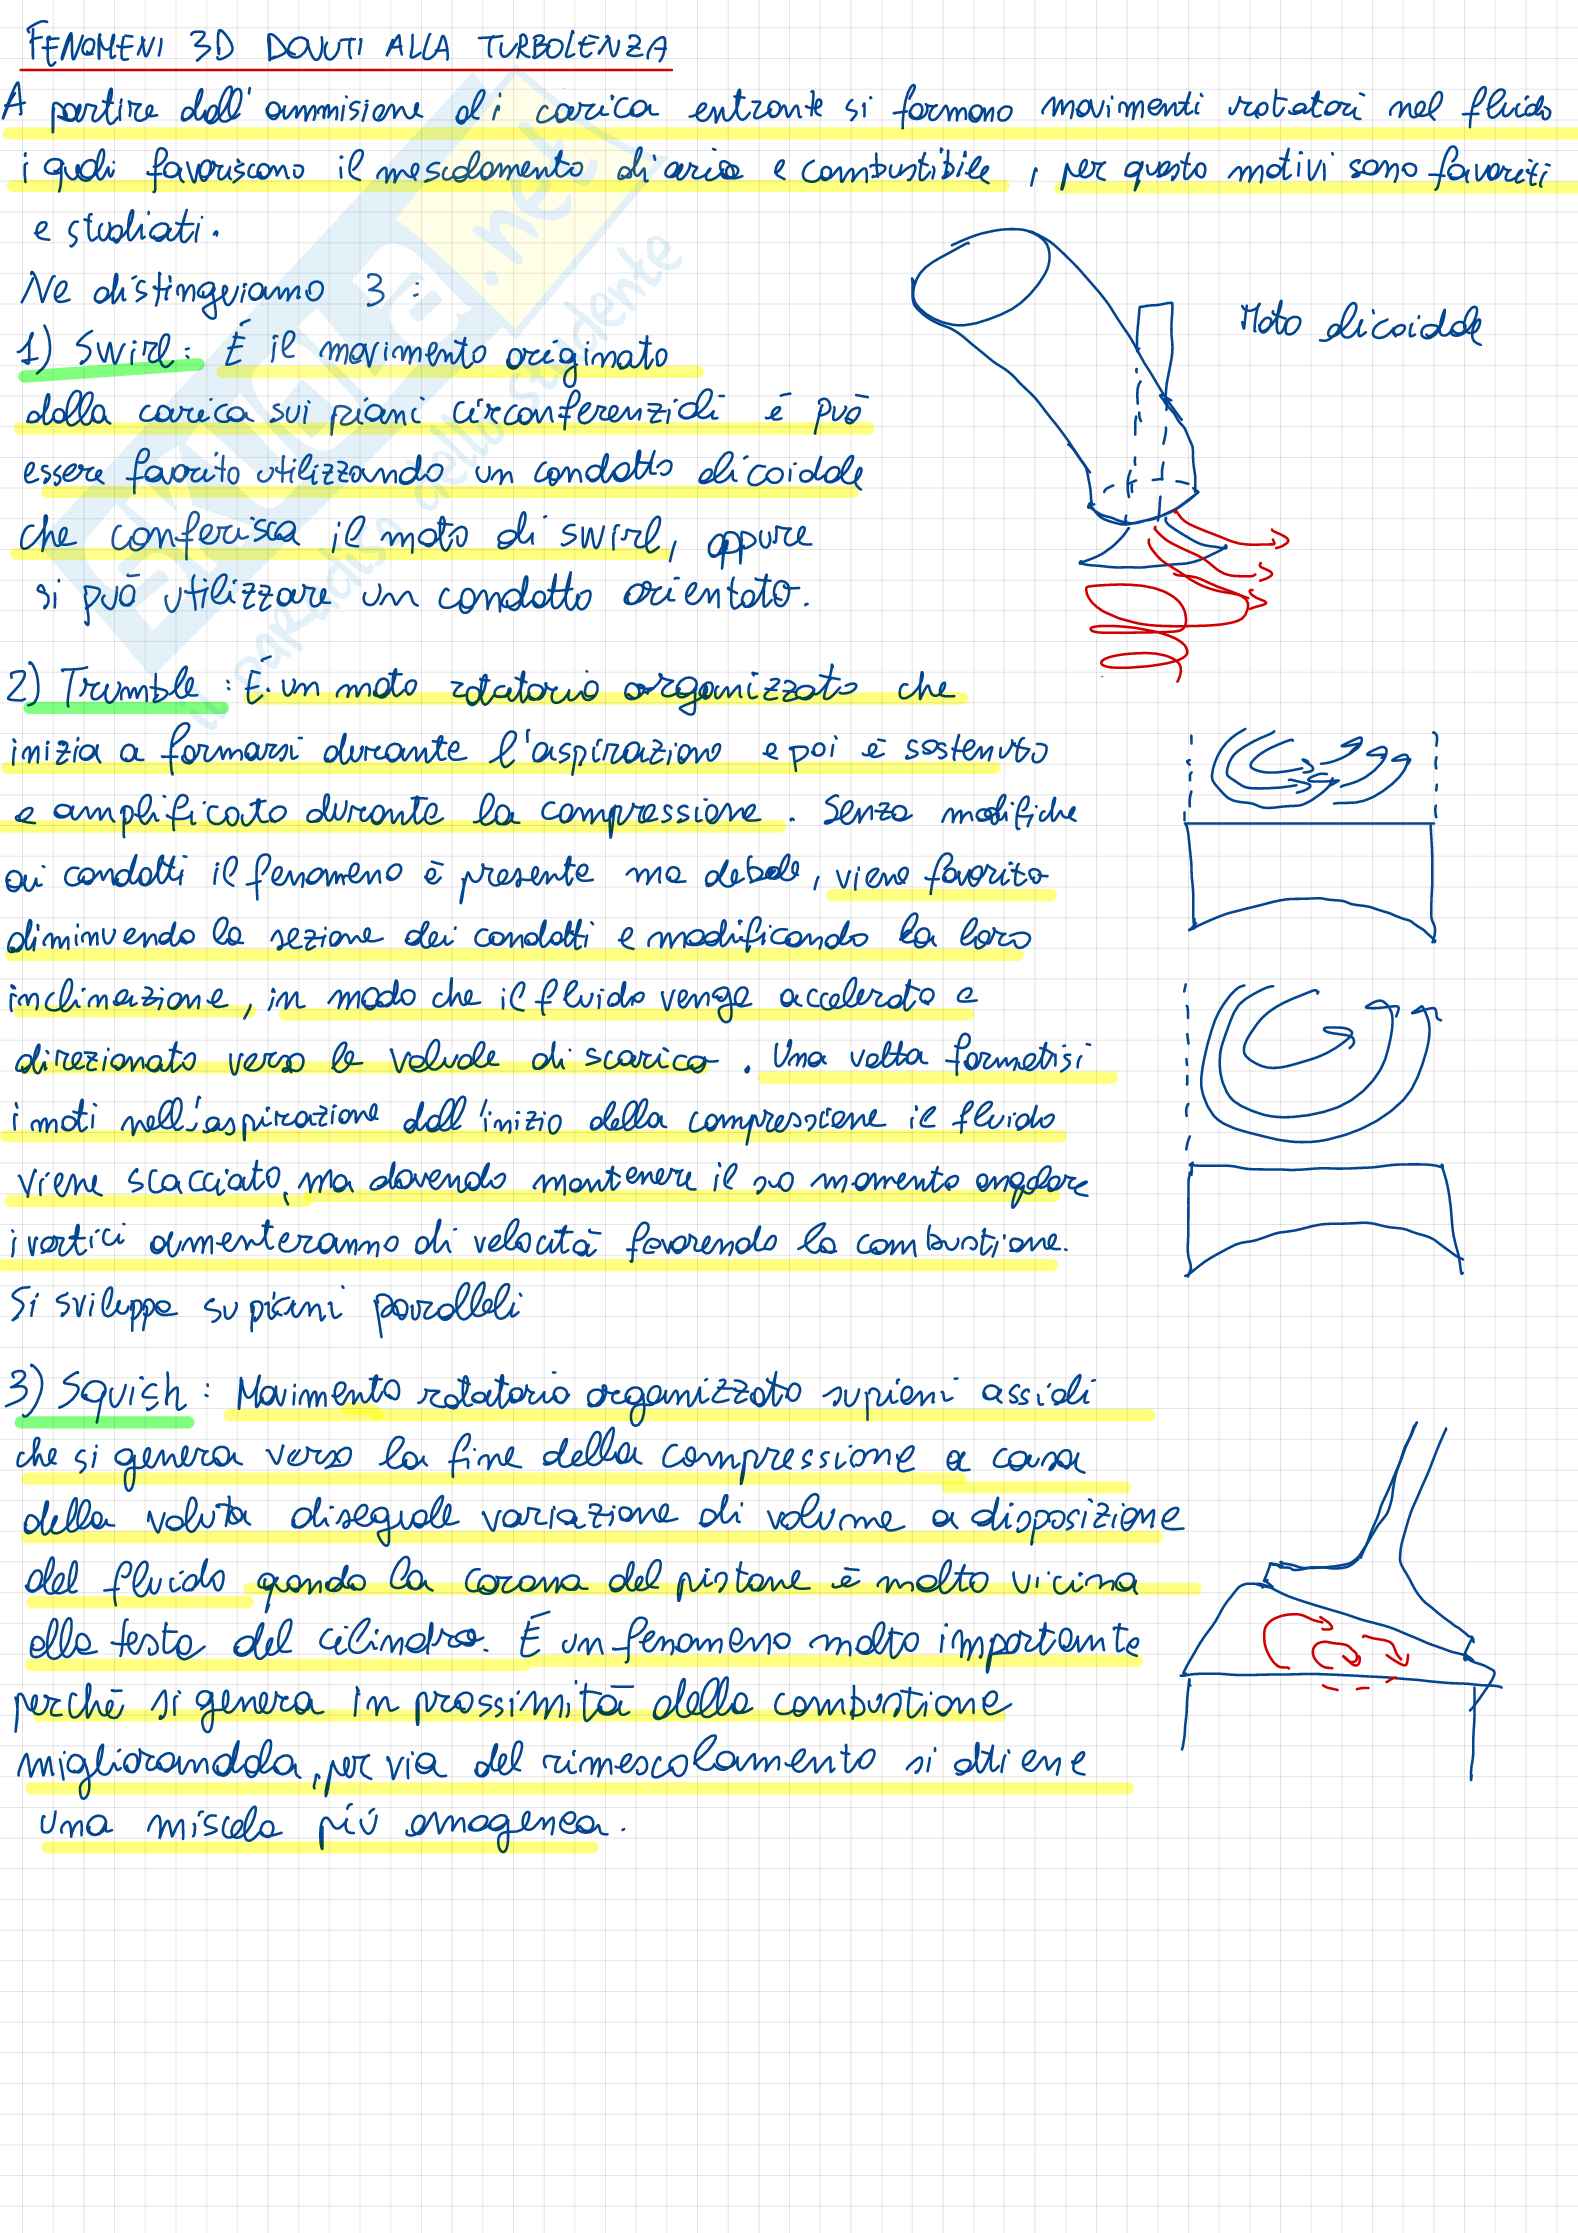 FENOMENI 3D DOVUTI ALLA TURBOLENZA
A partire dall'ammisione di carica entrante si formano movimenti rotatori nel fluido
i quali favoriscono il mescolamento di aria e combustibile, per questo motivi sono favoriti
e studiati.
Ne distinguiamo 3 :
1) Swirl: É il movimento originato
dalla carica sui piani circonferenziali é può
essere favorito utilizzando un condotto elicoidale
che conferisca il moto di swirl, oppure
si può utilizzare un condotto orientato.
Moto elicoidale
2) Trumble : É un moto rotatorio organizzato che
inizia a formarsi durante l'aspirazione e poi é sostenuto
e amplificato durante la compressione. Senza modifiche
ai condotti il fenomeno è presente ma debole, viene favorito
diminuendo la sezione dei condotti e modificando la loro
inclinazione, in modo che il fluido venga accelerato e
direzionato verso le valvole di scarico. Una volta formatisi
i moti nell'aspirazione dall'inizio della compressione il fluido
viene scacciato, ma dovendo mantenere il suo momento angolare
i vortici aumenteranno di velocità favorendo la combustione.
Si sviluppa su piani paralleli
3) Squish : Movimento rotatorio organizzato su piani assiali
che si genera verso la fine della compressione a causa
della voluta diseguale variazione di volume a disposizione
del fluido quando la corona del pistone è molto vicina
alla testa del cilindro. É un fenomeno molto importante
perché si genera in prossimità della combustione
migliorandola, per via del rimescolamento si ottiene
una miscela più omogenea.
skuola.net
il paradiso dello studente